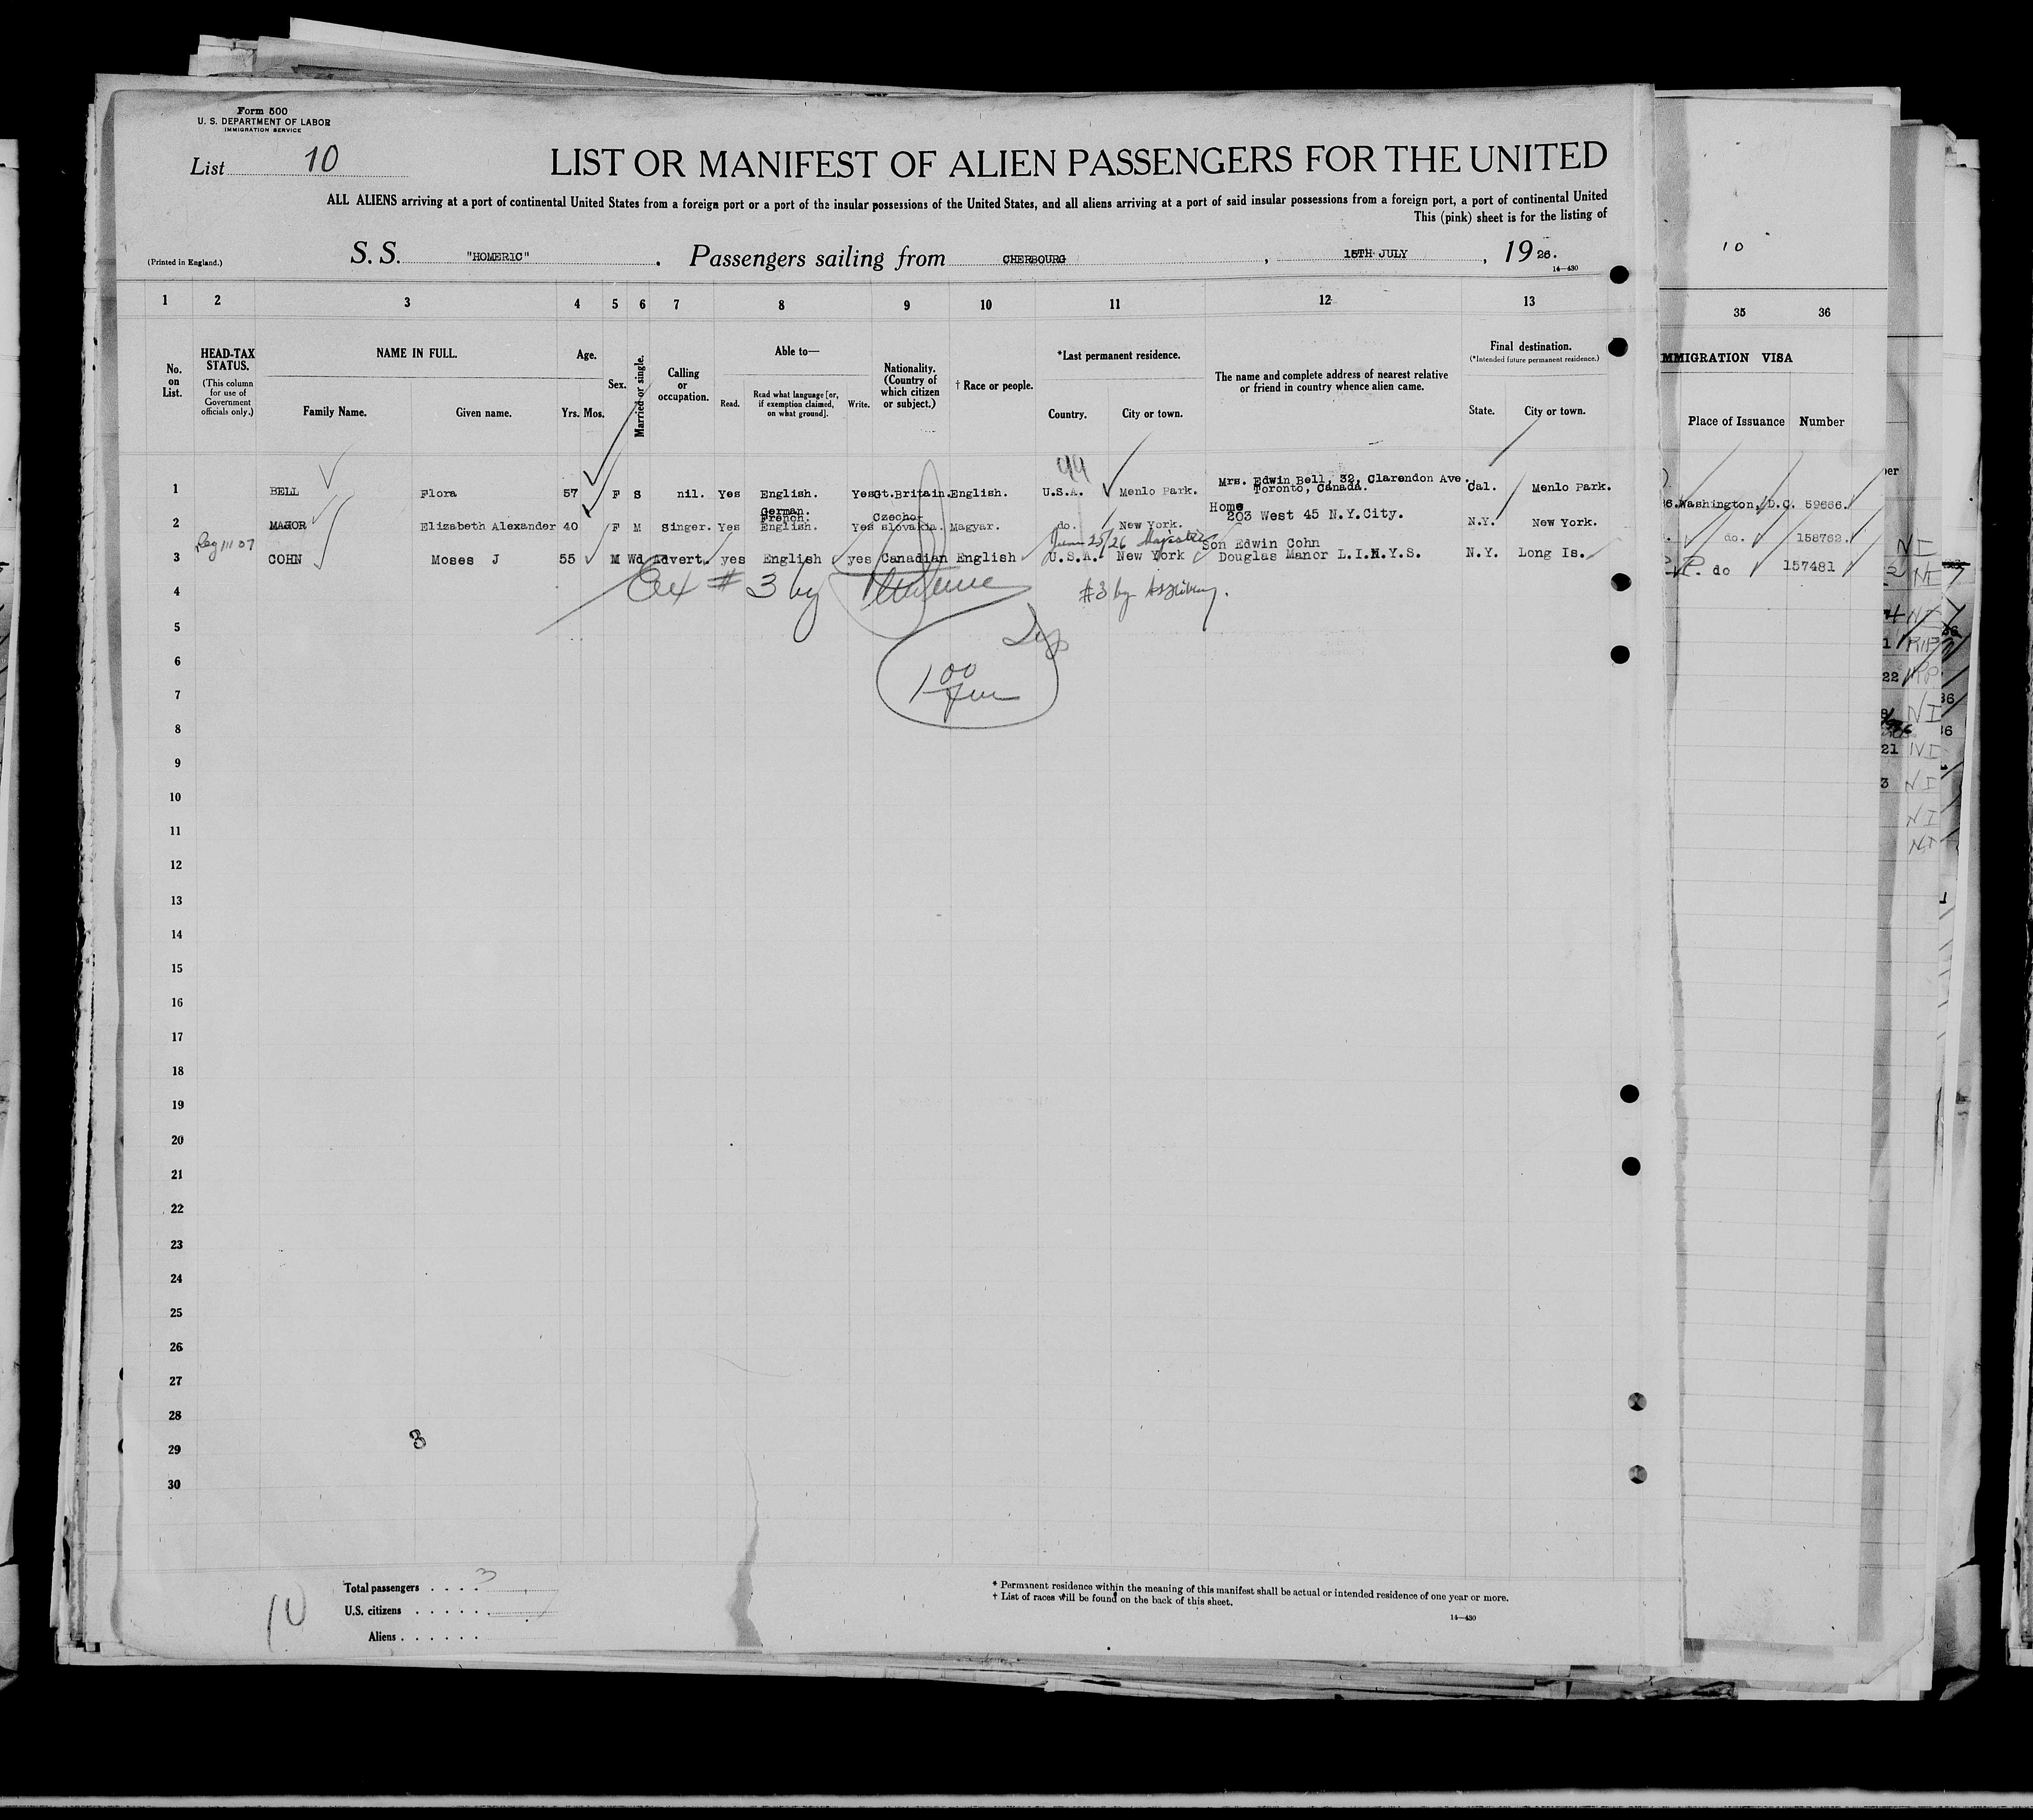 Form 500
U. S. DEPARTMENT OF LABOR
IMMIGRATION SERVICE
List 10
LIST OR MANIFEST OF ALIEN PASSENGERS FOR THE UNITED
ALL ALIENS arriving at a port of continental United States from a foreign port or a port of the insular possessions of the United States, and all aliens arriving at a port of said insular possessions from a foreign port, a port of continental United
This (pink) sheet is for the listing of
10
(Printed in England.) S. S. "HOMERIC". Passengers sailing from CHERBOURG, 15TH JULY, 1926.
14—430
1 2 3 4 5 6 7 8 9 10 11 12 13 35 36
No. on List.
HEAD-TAX STATUS.
(This column for use of Government officials only.)
NAME IN FULL.
Family Name. Given name.
Age.
Yrs. Mos.
Sex.
Married or single.
Calling or occupation.
Able to—
Read. Read what language [or, if exemption claimed, on what ground]. Write.
Nationality. (Country of which citizen or subject.)
† Race or people.
*Last permanent residence.
Country. City or town.
The name and complete address of nearest relative or friend in country whence alien came.
Final destination.
(*Intended future permanent residence.)
State. City or town.
MMIGRATION VISA
Place of Issuance Number
44
1 BELL Flora 57 F S nil. Yes English. Yes Gt.Britain. English. U.S.A. Menlo Park. Mrs. Edwin Bell, 32, Clarendon Ave. Toronto, Canada. Cal. Menlo Park. Washington, D.C. 59666.
2 MAJOR Elizabeth Alexander 40 F M Singer. Yes German. French. English. Yes Czecho-slovakia. Magyar. do. New York. Home 203 West 45 N.Y.City. N.Y. New York. do. 158762.
June 25/26 Majestic
3 COHN Moses J 55 M Wd Advert. yes English yes Canadian English U.S.A. New York Son Edwin Cohn Douglas Manor L.I.N.Y.S. N.Y. Long Is. P. do 157481
4
# 3 by
#3 by
5
6
7
100
8
9
10
11
12
13
14
15
16
17
18
19
20
21
22
23
24
25
26
27
28
29
30
3
Total passengers . . . . 3
U.S. citizens . . . . . .
Aliens . . . . . .
10
* Permanent residence within the meaning of this manifest shall be actual or intended residence of one year or more.
† List of races will be found on the back of this sheet.
14—430